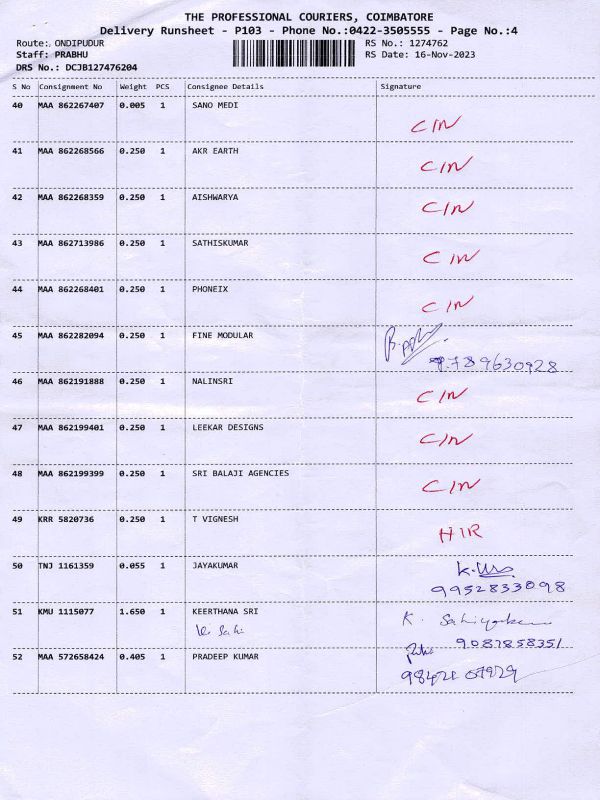 THE PROFESSIONAL COURIERS, COIMBATORE
Delivery Runsheet - P103 - Phone No.:0422-3505555 - Page No.:4
Route: ONDIPUDUR
RS No.: 1274762
Staff: PRABHU
RS Date: 16-Nov-2023
DRS No.: DCJB127476204
S No Consignment No Weight PCS Consignee Details Signature
40 MAA 862267407 0.005 1 SANO MEDI
C/N
41 MAA 862268566 0.250 1 AKR EARTH
C/N
42 MAA 862268359 0.250 1 AISHWARYA
C/N
43 MAA 862713986 0.250 1 SATHISKUMAR
C/N
44 MAA 862268401 0.250 1 PHONEIX
C/N
45 MAA 862282094 0.250 1 FINE MODULAR
9789630928
46 MAA 862191888 0.250 1 NALINSRI
C/N
47 MAA 862199401 0.250 1 LEEKAR DESIGNS
C/N
48 MAA 862199399 0.250 1 SRI BALAJI AGENCIES
C/N
49 KRR 5820736 0.250 1 T VIGNESH
HIR
50 TNJ 1161359 0.055 1 JAYAKUMAR
9952833098
51 KMU 1115077 1.650 1 KEERTHANA SRI
K.
9087858351
52 MAA 572658424 0.405 1 PRADEEP KUMAR